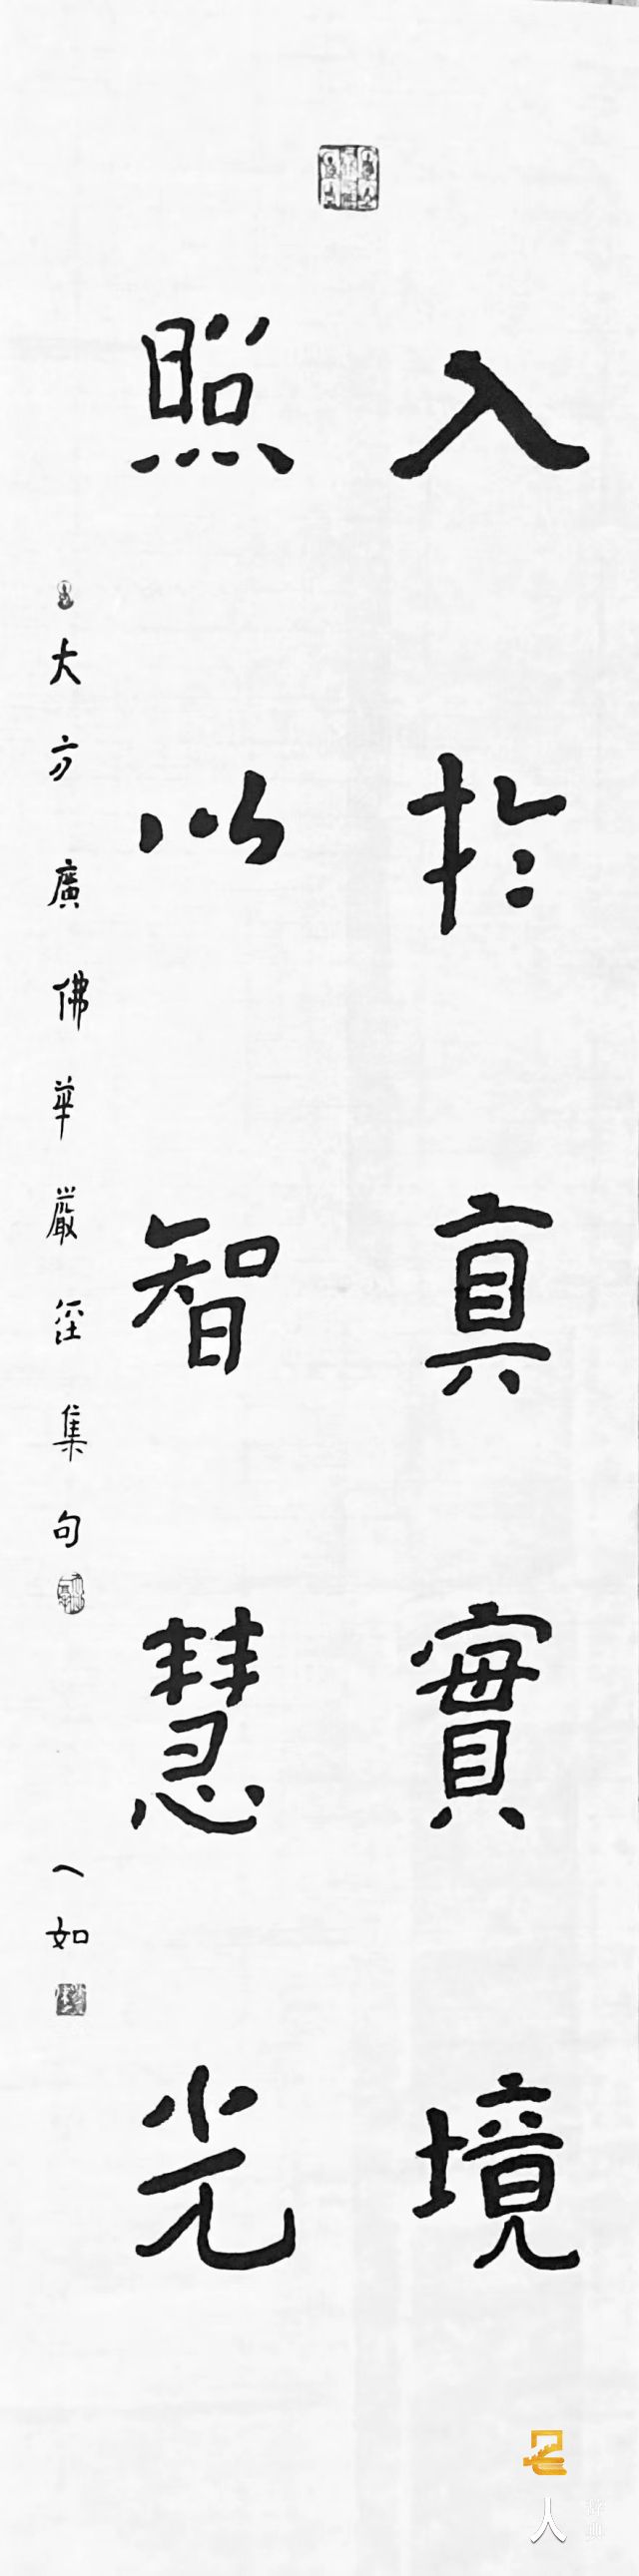 入於真實境
照以智慧光
大方廣佛華嚴經集句
一如
人